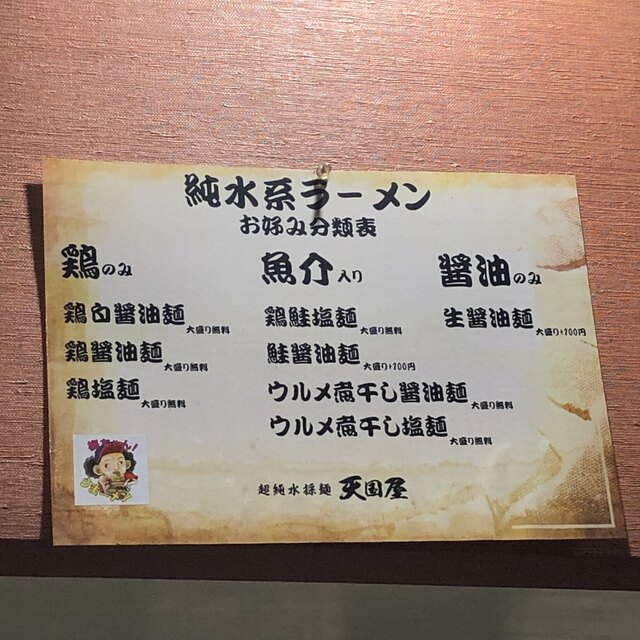 純水系ラーメン
お好み分類表
鶏のみ
鶏白醤油麺 大盛り無料
鶏醤油麺 大盛り無料
鶏塩麺 大盛り無料
魚介入り
鶏鮭塩麺 大盛り無料
鮭醤油麺 大盛り+200円
ウルメ煮干し醤油麺 大盛り無料
ウルメ煮干し塩麺 大盛り無料
醤油のみ
生醤油麺 大盛り+200円
超純水採麺 天国屋